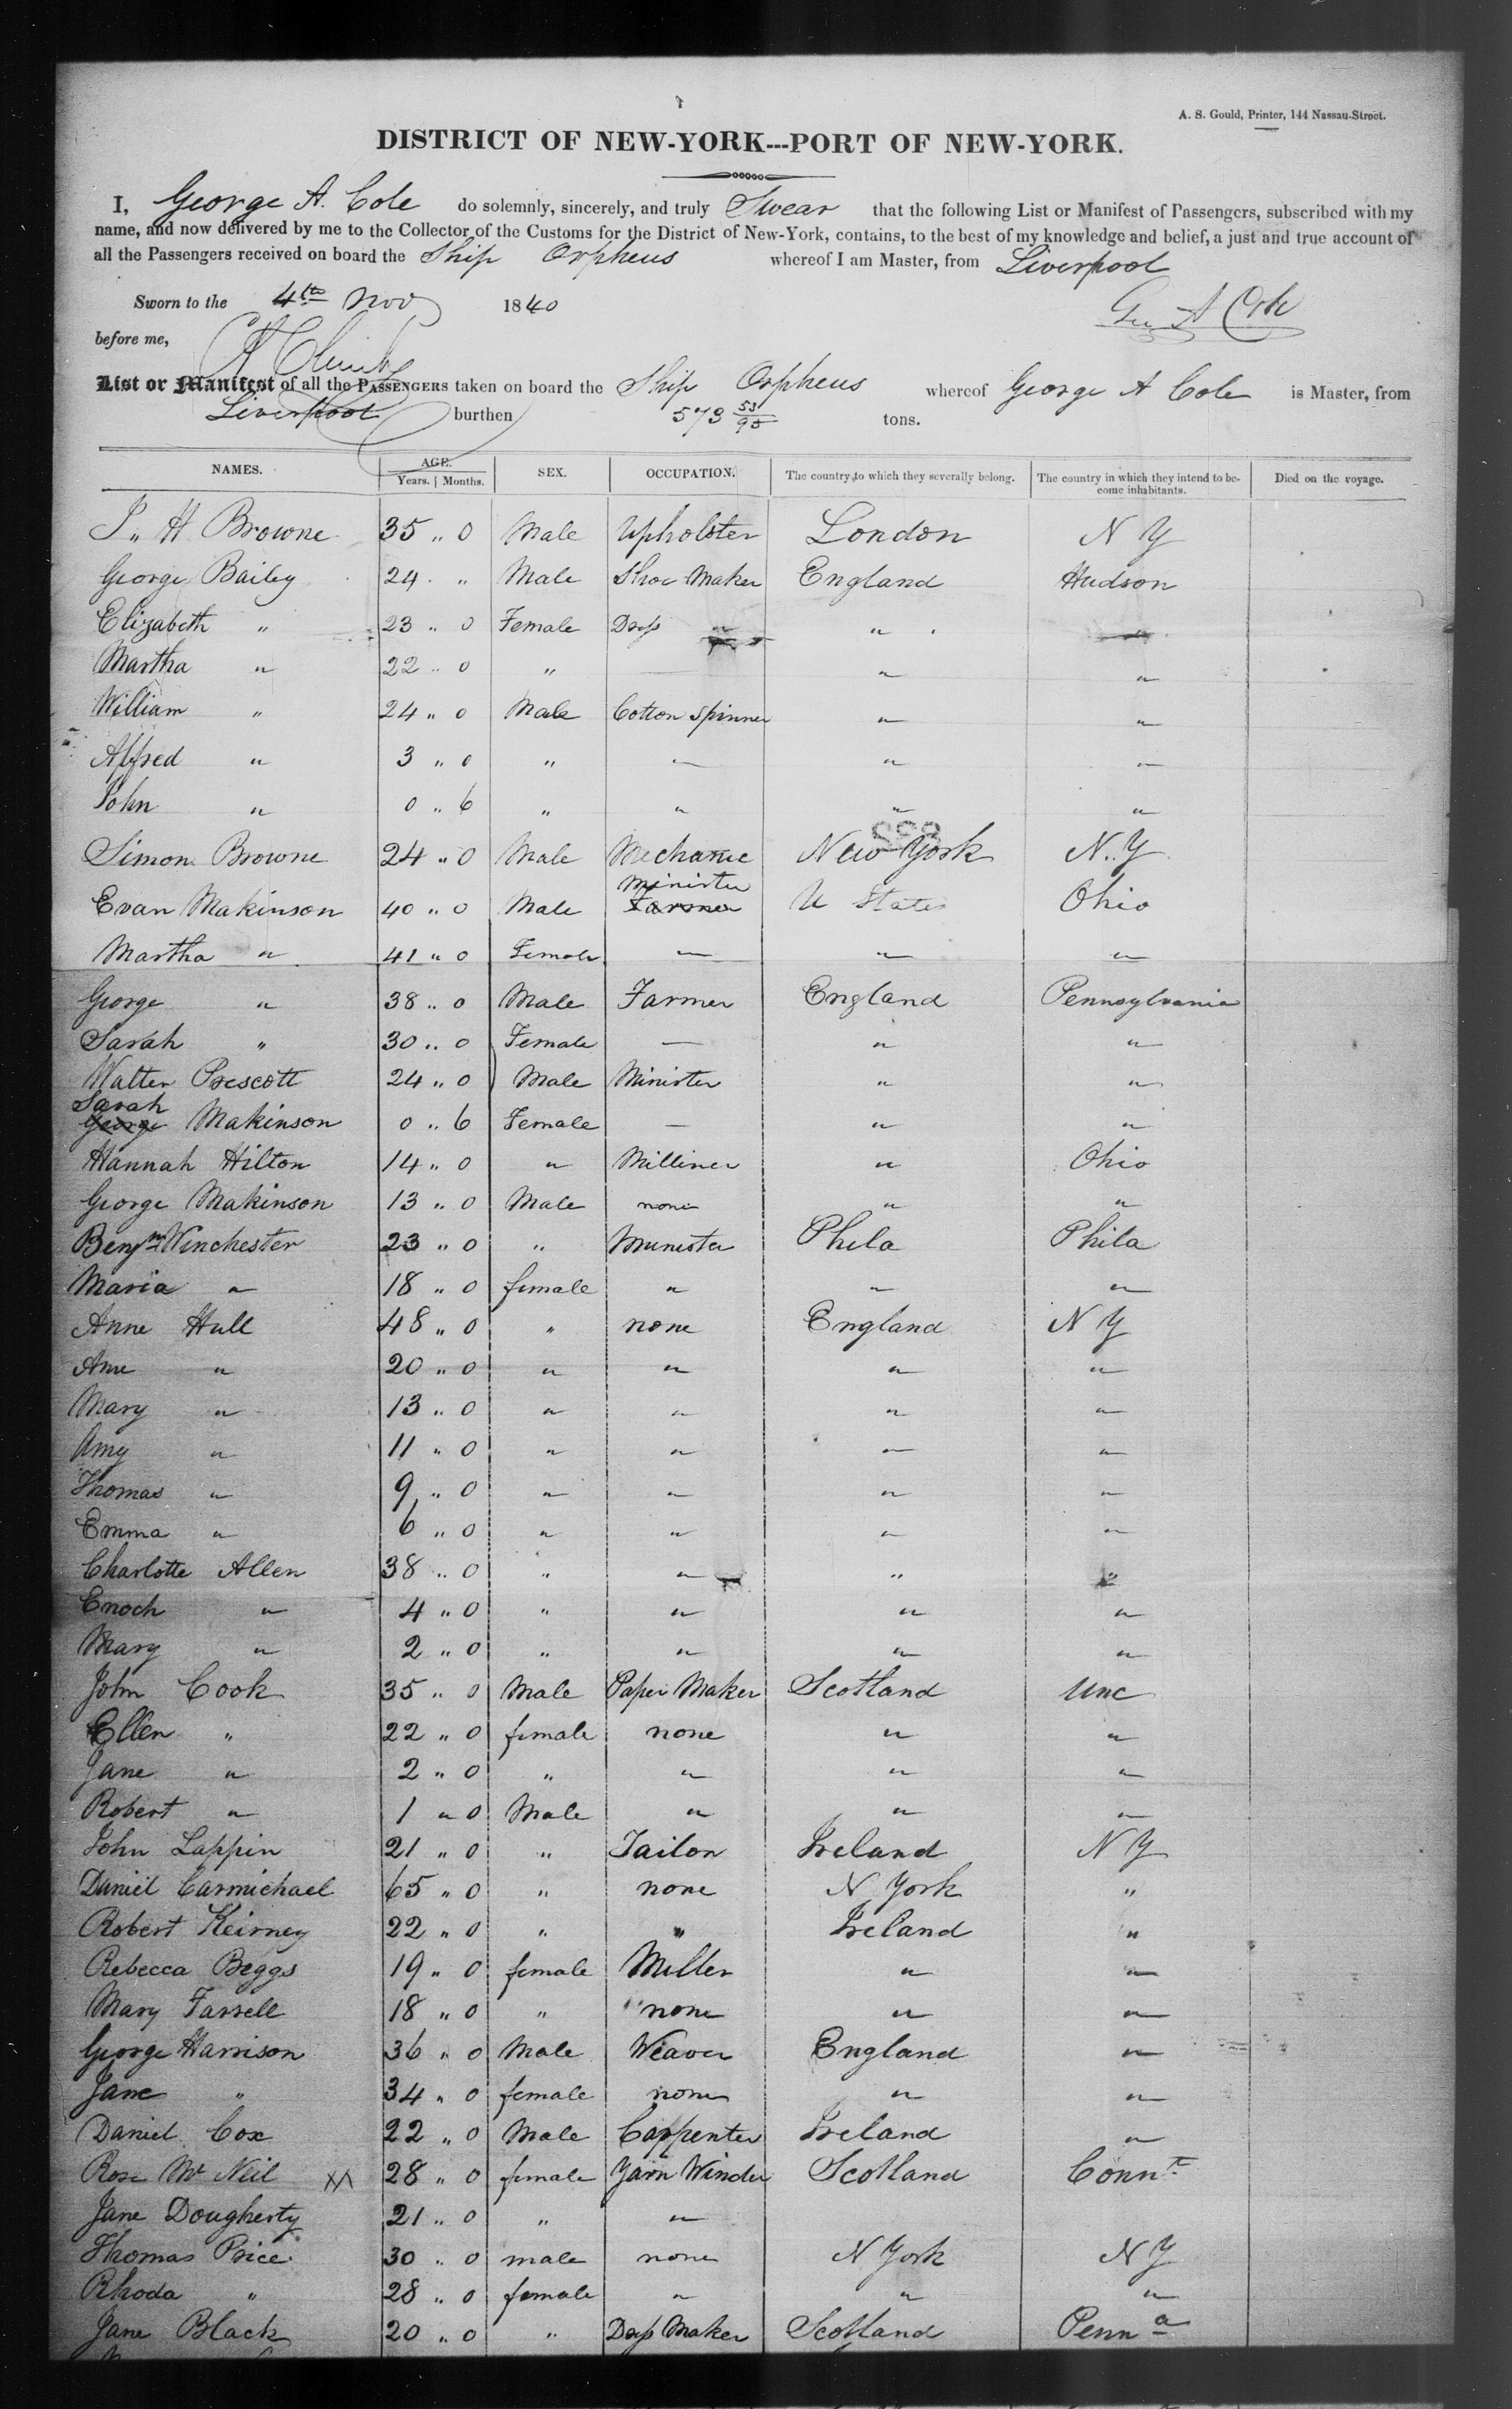 A. S. Gould, Printer, 144 Nassau-Street.
DISTRICT OF NEW-YORK---PORT OF NEW-YORK.
I, George A. Cole do solemnly, sincerely, and truly Swear that the following List or Manifest of Passengers, subscribed with my
name, and now delivered by me to the Collector of the Customs for the District of New-York, contains, to the best of my knowledge and belief, a just and true account of
all the Passengers received on board the Ship Orpheus whereof I am Master, from Liverpool
Sworn to the 4th Nov 1840 Geo A Cole
before me,
List or Manifest of all the PASSENGERS taken on board the Ship Orpheus whereof George A Cole is Master, from
Liverpool burthen 573 53/95 tons.
NAMES. AGE. Years. | Months. SEX. OCCUPATION. The country to which they severally belong. The country in which they intend to become inhabitants. Died on the voyage.
J,, H Browne 35 ,, 0 Male Upholster London N Y
George Bailey 24 ,, Male Shoe Maker England Hudson
Elizabeth " 23 ,, 0 Female Drefs " " "
Martha " 22 ,, 0 " " "
William " 24 ,, 0 Male Cotton Spinner " "
Alfred " 3 ,, 0 " " " "
John " 0 ,, 6 " " " "
Simon Browne 24 ,, 0 Male Mechanic New York N.Y.
Minister
Evan Makinson 40 ,, 0 Male Farmer U States Ohio
Martha " 41 ,, 0 Female — " "
George " 38 ,, 0 Male Farmer England Pennsylvania
Sarah " 30 ,, 0 Female — " "
Walter Prescott 24 ,, 0 Male Minister " "
Sarah
George Makinson 0 ,, 6 Female — " "
Hannah Hilton 14 ,, 0 " Milliner " Ohio
George Makinson 13 ,, 0 Male none " "
Benjmn Winchester 23 ,, 0 " Minister Phila Phila
Maria " 18 ,, 0 female " " "
Anne Hull 48 ,, 0 " none England N Y
Ann " 20 ,, 0 " " " "
Mary " 13 ,, 0 " " " "
Amy " 11 ,, 0 " " " "
Thomas " 9 ,, 0 " " " "
Emma " 6 ,, 0 " " " "
Charlotte Allen 38 ,, 0 " " " "
Enoch " 4 ,, 0 " " " "
Mary " 2 ,, 0 " " " "
John Cook 35 ,, 0 Male Paper Maker Scotland Unc
Ellen " 22 ,, 0 female none " "
Jane " 2 ,, 0 " " " "
Robert " 1 ,, 0 Male " " "
John Lappin 21 ,, 0 " Tailor Ireland N Y
Daniel Carmichael 65 ,, 0 " none N York "
Robert Keirney 22 ,, 0 " " Ireland "
Rebecca Beggs 19 ,, 0 female Miller " "
Mary Farrell 18 ,, 0 " none " "
George Harrison 36 ,, 0 Male Weaver England "
Jane " 34 ,, 0 female none " "
Daniel Cox 22 ,, 0 Male Carpenter Ireland "
Rose Mc Neil XX 28 ,, 0 female Yarn Winder Scotland Connt
Jane Dougherty 21 ,, 0 " "
Thomas Price 30 ,, 0 male none N York N Y
Rhoda " 28 ,, 0 female " " "
Jane Black 20 ,, 0 " Drefs Maker Scotland Penna